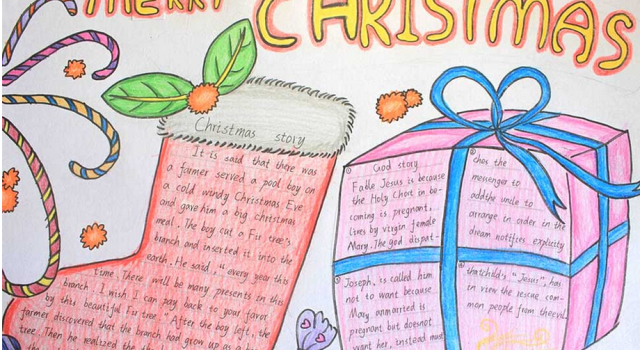 MERRY CHRISTMAS
Christmas story
It is said that there was
a farmer served a pool boy on
a cold windy Christmas Eve
and gave him a big christmas
meal. The boy cut a Fir tree's
branch and inserted it into the
earth. He said, "every year this
time. There will be many presents in this
branch. I wish I can pay back to your favor
by this beautiful Fir tree." After the boy left, the
farmer discovered that the branch had grow up as a
tree. Then he realized the
① God story
Fable Jesus is because
the Holy Choir in be-
coming is pregnant.
Lives by virgin female
Mary. The god dispat-
② ched the
messenger to
add the uncle to
arrange in order in the
dream notifies explicity
③ Joseph. is called him
not to want because
Mary unmarried is
pregnant but doesnot
want her, instead must
④ "Jesus", has
in view the rescue com-
mon people from the evil.